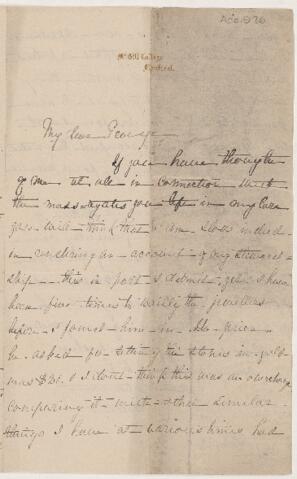 McGill College
Montreal.
My dear George
If you have thought
of me at all in connection with
the moss agates you left in my care
you will think that I am slow indeed
in rendering an account of my steward-
ship — this in part I admit, yet I have
been five times to the jewellers
before I found him in. The price
he asked for setting the stones in gold
was I don't think this was an overcharge
comparing it with other similar
things I have at various times had